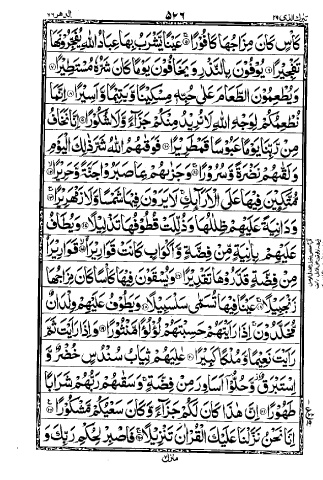 تبٰرك الذی ٢٩ ٥٢٦ الدهر ٧٦
كَاْسٍ كَانَ مِزَاجُهَا كَافُوْرًا ۚ عَيْنًا يَّشْرَبُ بِهَا عِبَادُ اللّٰهِ يُفَجِّرُوْنَهَا
تَفْجِيْرًا ۝ يُوْفُوْنَ بِالنَّذْرِ وَيَخَافُوْنَ يَوْمًا كَانَ شَرُّهٗ مُسْتَطِيْرًا ۝
وَيُطْعِمُوْنَ الطَّعَامَ عَلٰى حُبِّهٖ مِسْكِيْنًا وَّيَتِيْمًا وَّاَسِيْرًا ۝ اِنَّمَا
نُطْعِمُكُمْ لِوَجْهِ اللّٰهِ لَا نُرِيْدُ مِنْكُمْ جَزَآءً وَّلَا شُكُوْرًا ۝ اِنَّا نَخَافُ
مِنْ رَّبِّنَا يَوْمًا عَبُوْسًا قَمْطَرِيْرًا ۝ فَوَقٰهُمُ اللّٰهُ شَرَّ ذٰلِكَ الْيَوْمِ
وَلَقّٰهُمْ نَضْرَةً وَّسُرُوْرًا ۝ وَجَزٰهُمْ بِمَا صَبَرُوْا جَنَّةً وَّحَرِيْرًا ۝
مُّتَّكِـِٕيْنَ فِيْهَا عَلَى الْاَرَآئِكِ ۚ لَا يَرَوْنَ فِيْهَا شَمْسًا وَّلَا زَمْهَرِيْرًا ۝
وَدَانِيَةً عَلَيْهِمْ ظِلٰلُهَا وَذُلِّلَتْ قُطُوْفُهَا تَذْلِيْلًا ۝ وَيُطَافُ
عَلَيْهِمْ بِاٰنِيَةٍ مِّنْ فِضَّةٍ وَّاَكْوَابٍ كَانَتْ قَوَارِيْرَا۠ ۝ قَوَارِيْرَا۠
مِنْ فِضَّةٍ قَدَّرُوْهَا تَقْدِيْرًا ۝ وَيُسْقَوْنَ فِيْهَا كَاْسًا كَانَ مِزَاجُهَا
زَنْجَبِيْلًا ۝ عَيْنًا فِيْهَا تُسَمّٰى سَلْسَبِيْلًا ۝ وَيَطُوْفُ عَلَيْهِمْ وِلْدَانٌ
مُّخَلَّدُوْنَ ۚ اِذَا رَاَيْتَهُمْ حَسِبْتَهُمْ لُؤْلُؤًا مَّنْثُوْرًا ۝ وَاِذَا رَاَيْتَ ثَمَّ
رَاَيْتَ نَعِيْمًا وَّمُلْكًا كَبِيْرًا ۝ عٰلِيَهُمْ ثِيَابُ سُنْدُسٍ خُضْرٌ وَّ
اِسْتَبْرَقٌ ۡ وَّحُلُّوْٓا اَسَاوِرَ مِنْ فِضَّةٍ ۚ وَسَقٰهُمْ رَبُّهُمْ شَرَابًا
طَهُوْرًا ۝ اِنَّ هٰذَا كَانَ لَكُمْ جَزَآءً وَّكَانَ سَعْيُكُمْ مَّشْكُوْرًا ۝
اِنَّا نَحْنُ نَزَّلْنَا عَلَيْكَ الْقُرْاٰنَ تَنْزِيْلًا ۝ فَاصْبِرْ لِحُكْمِ رَبِّكَ وَ
منزل